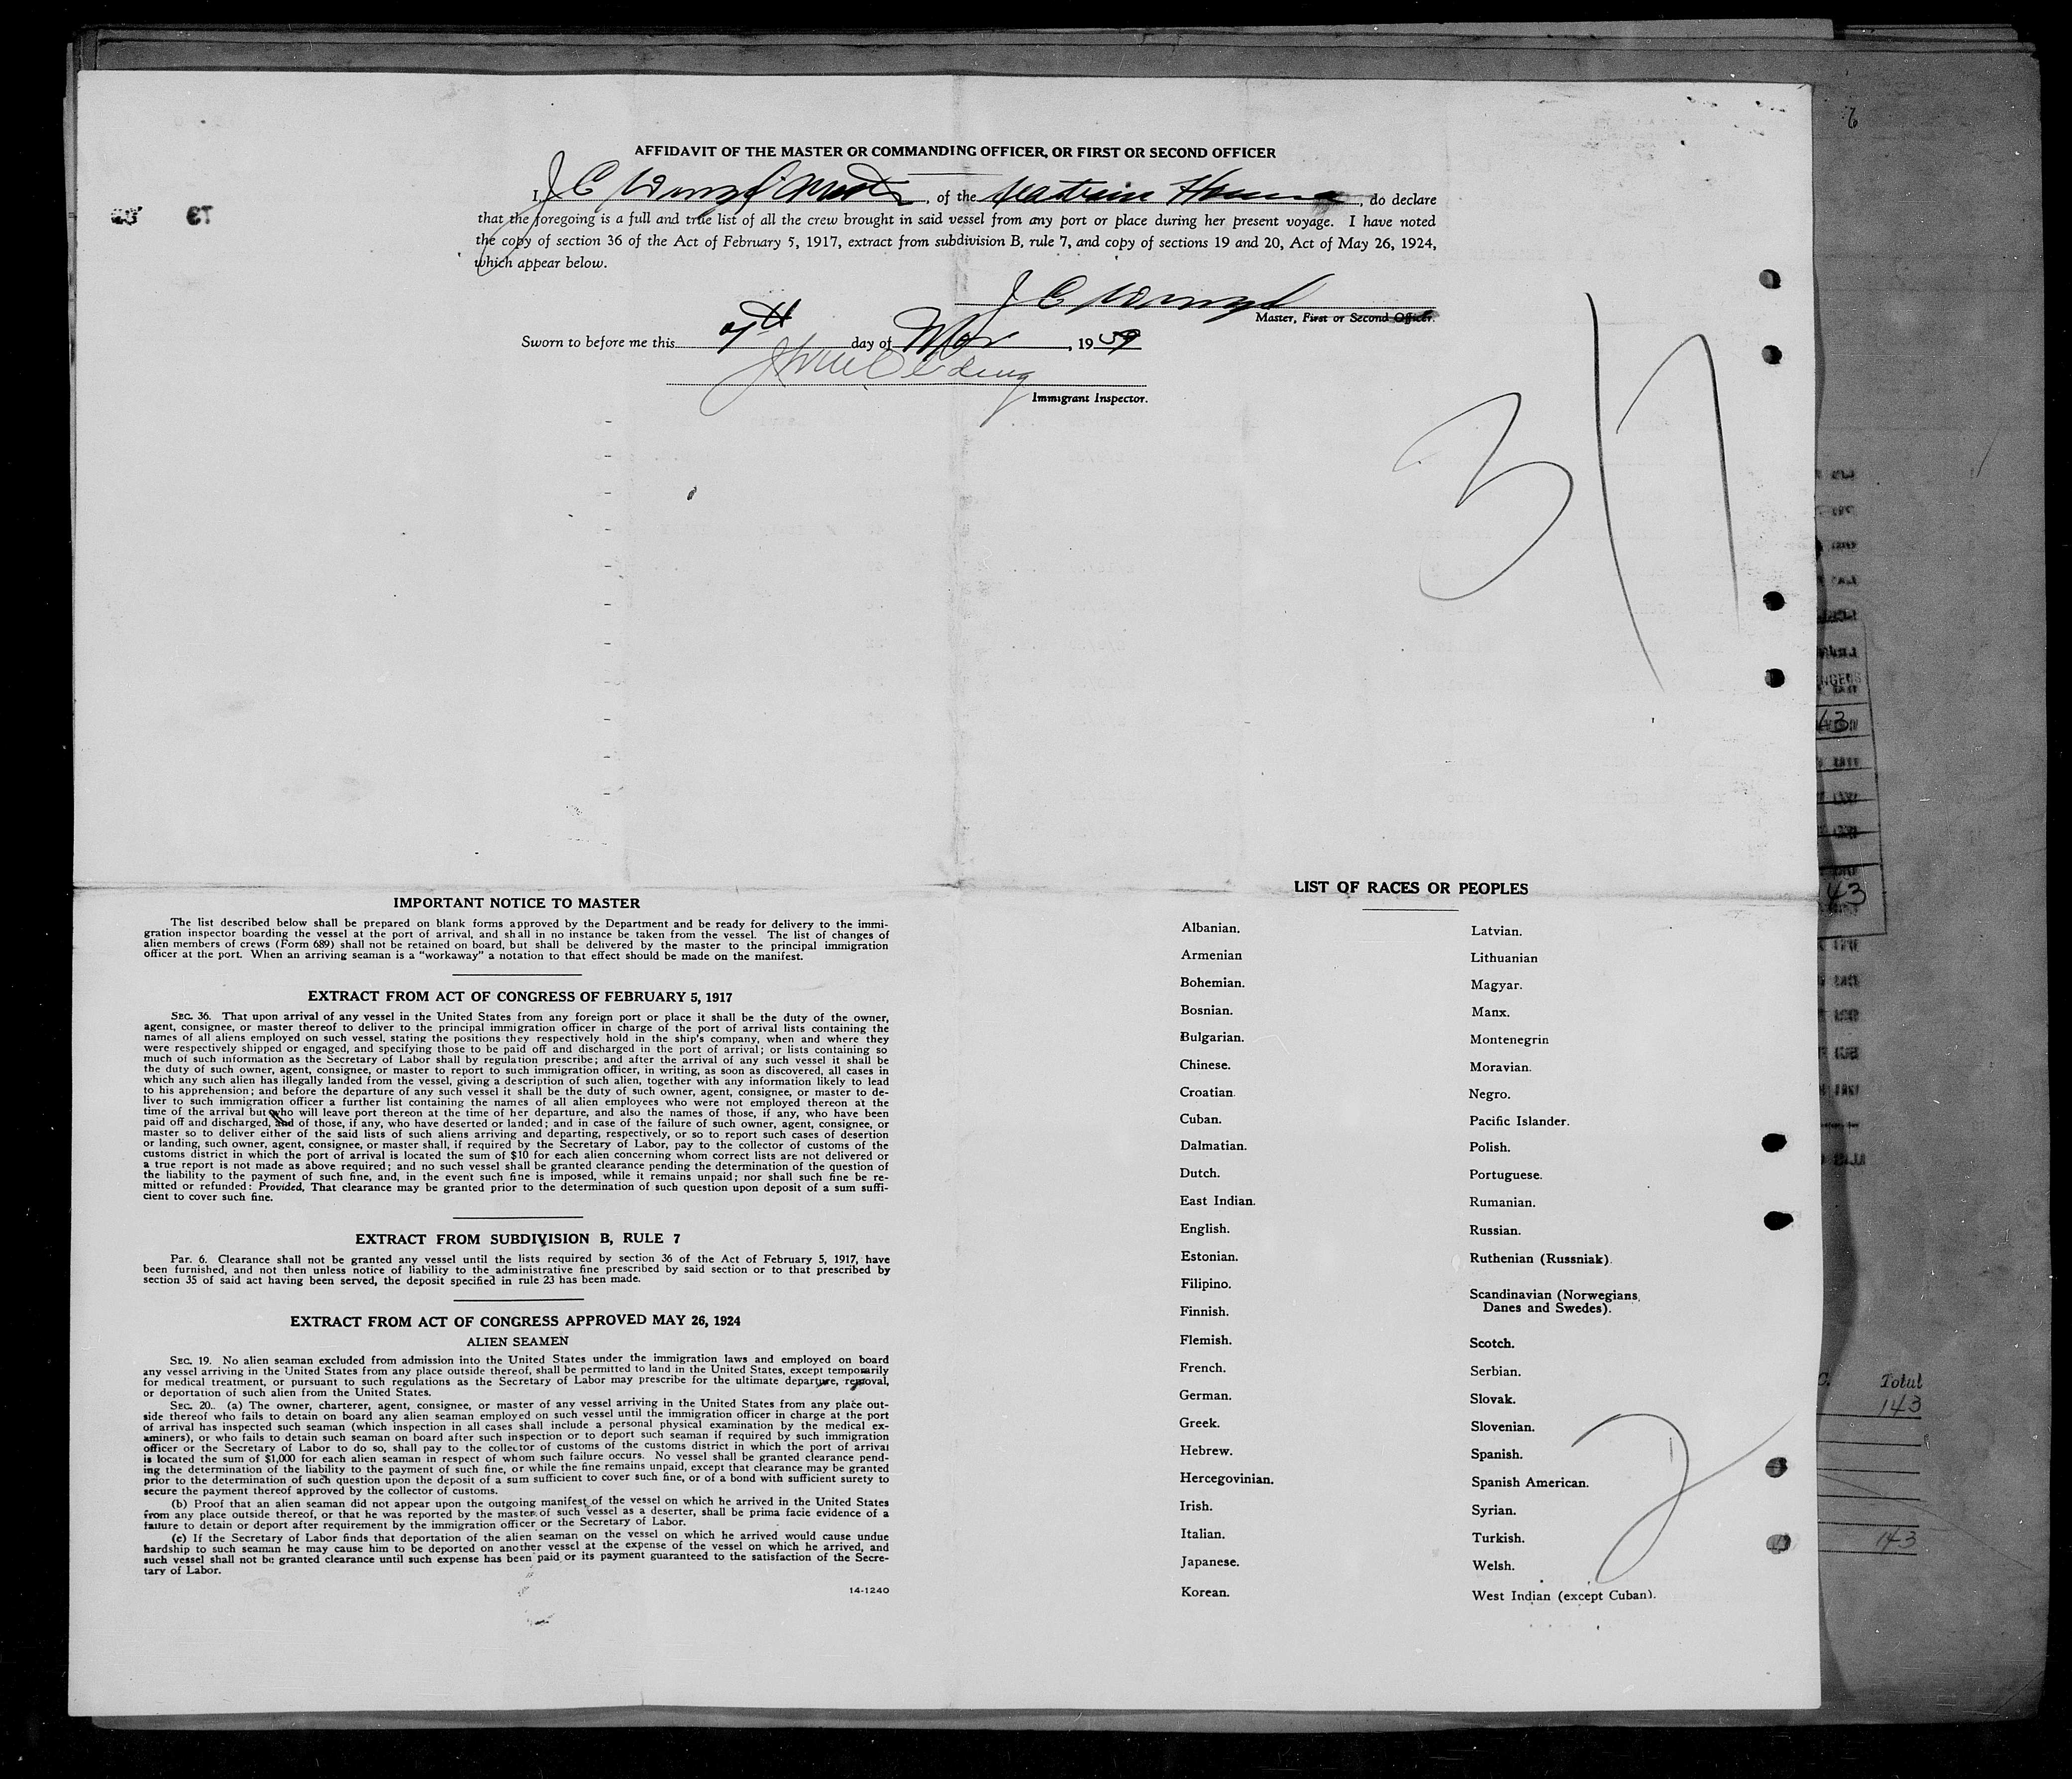 AFFIDAVIT OF THE MASTER OR COMMANDING OFFICER, OR FIRST OR SECOND OFFICER
I, J C , of the Seatrain , do declare
that the foregoing is a full and true list of all the crew brought in said vessel from any port or place during her present voyage. I have noted
the copy of section 36 of the Act of February 5, 1917, extract from subdivision B, rule 7, and copy of sections 19 and 20, Act of May 26, 1924,
which appear below.
J C
Master, First or Second Officer.
Sworn to before me this day of Mar, 1939
Immigrant Inspector.
317
IMPORTANT NOTICE TO MASTER
The list described below shall be prepared on blank forms approved by the Department and be ready for delivery to the immi-
gration inspector boarding the vessel at the port of arrival, and shall in no instance be taken from the vessel. The list of changes of
alien members of crews (Form 689) shall not be retained on board, but shall be delivered by the master to the principal immigration
officer at the port. When an arriving seaman is a "workaway" a notation to that effect should be made on the manifest.
EXTRACT FROM ACT OF CONGRESS OF FEBRUARY 5, 1917
SEC. 36. That upon arrival of any vessel in the United States from any foreign port or place it shall be the duty of the owner,
agent, consignee, or master thereof to deliver to the principal immigration officer in charge of the port of arrival lists containing the
names of all aliens employed on such vessel, stating the positions they respectively hold in the ship's company, when and where they
were respectively shipped or engaged, and specifying those to be paid off and discharged in the port of arrival; or lists containing so
much of such information as the Secretary of Labor shall by regulation prescribe; and after the arrival of any such vessel it shall be
the duty of such owner, agent, consignee, or master to report to such immigration officer, in writing, as soon as discovered, all cases in
which any such alien has illegally landed from the vessel, giving a description of such alien, together with any information likely to lead
to his apprehension; and before the departure of any such vessel it shall be the duty of such owner, agent, consignee, or master to de-
liver to such immigration officer a further list containing the names of all alien employees who were not employed thereon at the
time of the arrival but who will leave port thereon at the time of her departure, and also the names of those, if any, who have been
paid off and discharged, and of those, if any, who have deserted or landed; and in case of the failure of such owner, agent, consignee, or
master so to deliver either of the said lists of such aliens arriving and departing, respectively, or so to report such cases of desertion
or landing, such owner, agent, consignee, or master shall, if required by the Secretary of Labor, pay to the collector of customs of the
customs district in which the port of arrival is located the sum of $10 for each alien concerning whom correct lists are not delivered or
a true report is not made as above required; and no such vessel shall be granted clearance pending the determination of the question of
the liability to the payment of such fine, and, in the event such fine is imposed, while it remains unpaid; nor shall such fine be re-
mitted or refunded: Provided, That clearance may be granted prior to the determination of such question upon deposit of a sum suffi-
cient to cover such fine.
EXTRACT FROM SUBDIVISION B, RULE 7
Par. 6. Clearance shall not be granted any vessel until the lists required by section 36 of the Act of February 5, 1917, have
been furnished, and not then unless notice of liability to the administrative fine prescribed by said section or to that prescribed by
section 35 of said act having been served, the deposit specified in rule 23 has been made.
EXTRACT FROM ACT OF CONGRESS APPROVED MAY 26, 1924
ALIEN SEAMEN
SEC. 19. No alien seaman excluded from admission into the United States under the immigration laws and employed on board
any vessel arriving in the United States from any place outside thereof, shall be permitted to land in the United States, except temporarily
for medical treatment, or pursuant to such regulations as the Secretary of Labor may prescribe for the ultimate departure, removal,
or deportation of such alien from the United States.
SEC. 20. (a) The owner, charterer, agent, consignee, or master of any vessel arriving in the United States from any place out-
side thereof who fails to detain on board any alien seaman employed on such vessel until the immigration officer in charge at the port
of arrival has inspected such seaman (which inspection in all cases shall include a personal physical examination by the medical ex-
aminers), or who fails to detain such seaman on board after such inspection or to deport such seaman if required by such immigration
officer or the Secretary of Labor to do so, shall pay to the collector of customs of the customs district in which the port of arrival
is located the sum of $1,000 for each alien seaman in respect of whom such failure occurs. No vessel shall be granted clearance pend-
ing the determination of the liability to the payment of such fine, or while the fine remains unpaid, except that clearance may be granted
prior to the determination of such question upon the deposit of a sum sufficient to cover such fine, or of a bond with sufficient surety to
secure the payment thereof approved by the collector of customs.
(b) Proof that an alien seaman did not appear upon the outgoing manifest of the vessel on which he arrived in the United States
from any place outside thereof, or that he was reported by the master of such vessel as a deserter, shall be prima facie evidence of a
failure to detain or deport after requirement by the immigration officer or the Secretary of Labor.
(c) If the Secretary of Labor finds that deportation of the alien seaman on the vessel on which he arrived would cause undue
hardship to such seaman he may cause him to be deported on another vessel at the expense of the vessel on which he arrived, and
such vessel shall not be granted clearance until such expense has been paid or its payment guaranteed to the satisfaction of the Secre-
tary of Labor.
14-1240
LIST OF RACES OR PEOPLES
Albanian.
Armenian
Bohemian.
Bosnian.
Bulgarian.
Chinese.
Croatian.
Cuban.
Dalmatian.
Dutch.
East Indian.
English.
Estonian.
Filipino.
Finnish.
Flemish.
French.
German.
Greek.
Hebrew.
Hercegovinian.
Irish.
Italian.
Japanese.
Korean.
Latvian.
Lithuanian
Magyar.
Manx.
Montenegrin
Moravian.
Negro.
Pacific Islander.
Polish.
Portuguese.
Rumanian.
Russian.
Ruthenian (Russniak).
Scandinavian (Norwegians,
Danes and Swedes).
Scotch.
Serbian.
Slovak.
Slovenian.
Spanish.
Spanish American.
Syrian.
Turkish.
Welsh.
West Indian (except Cuban).
2
43
Total
143
143